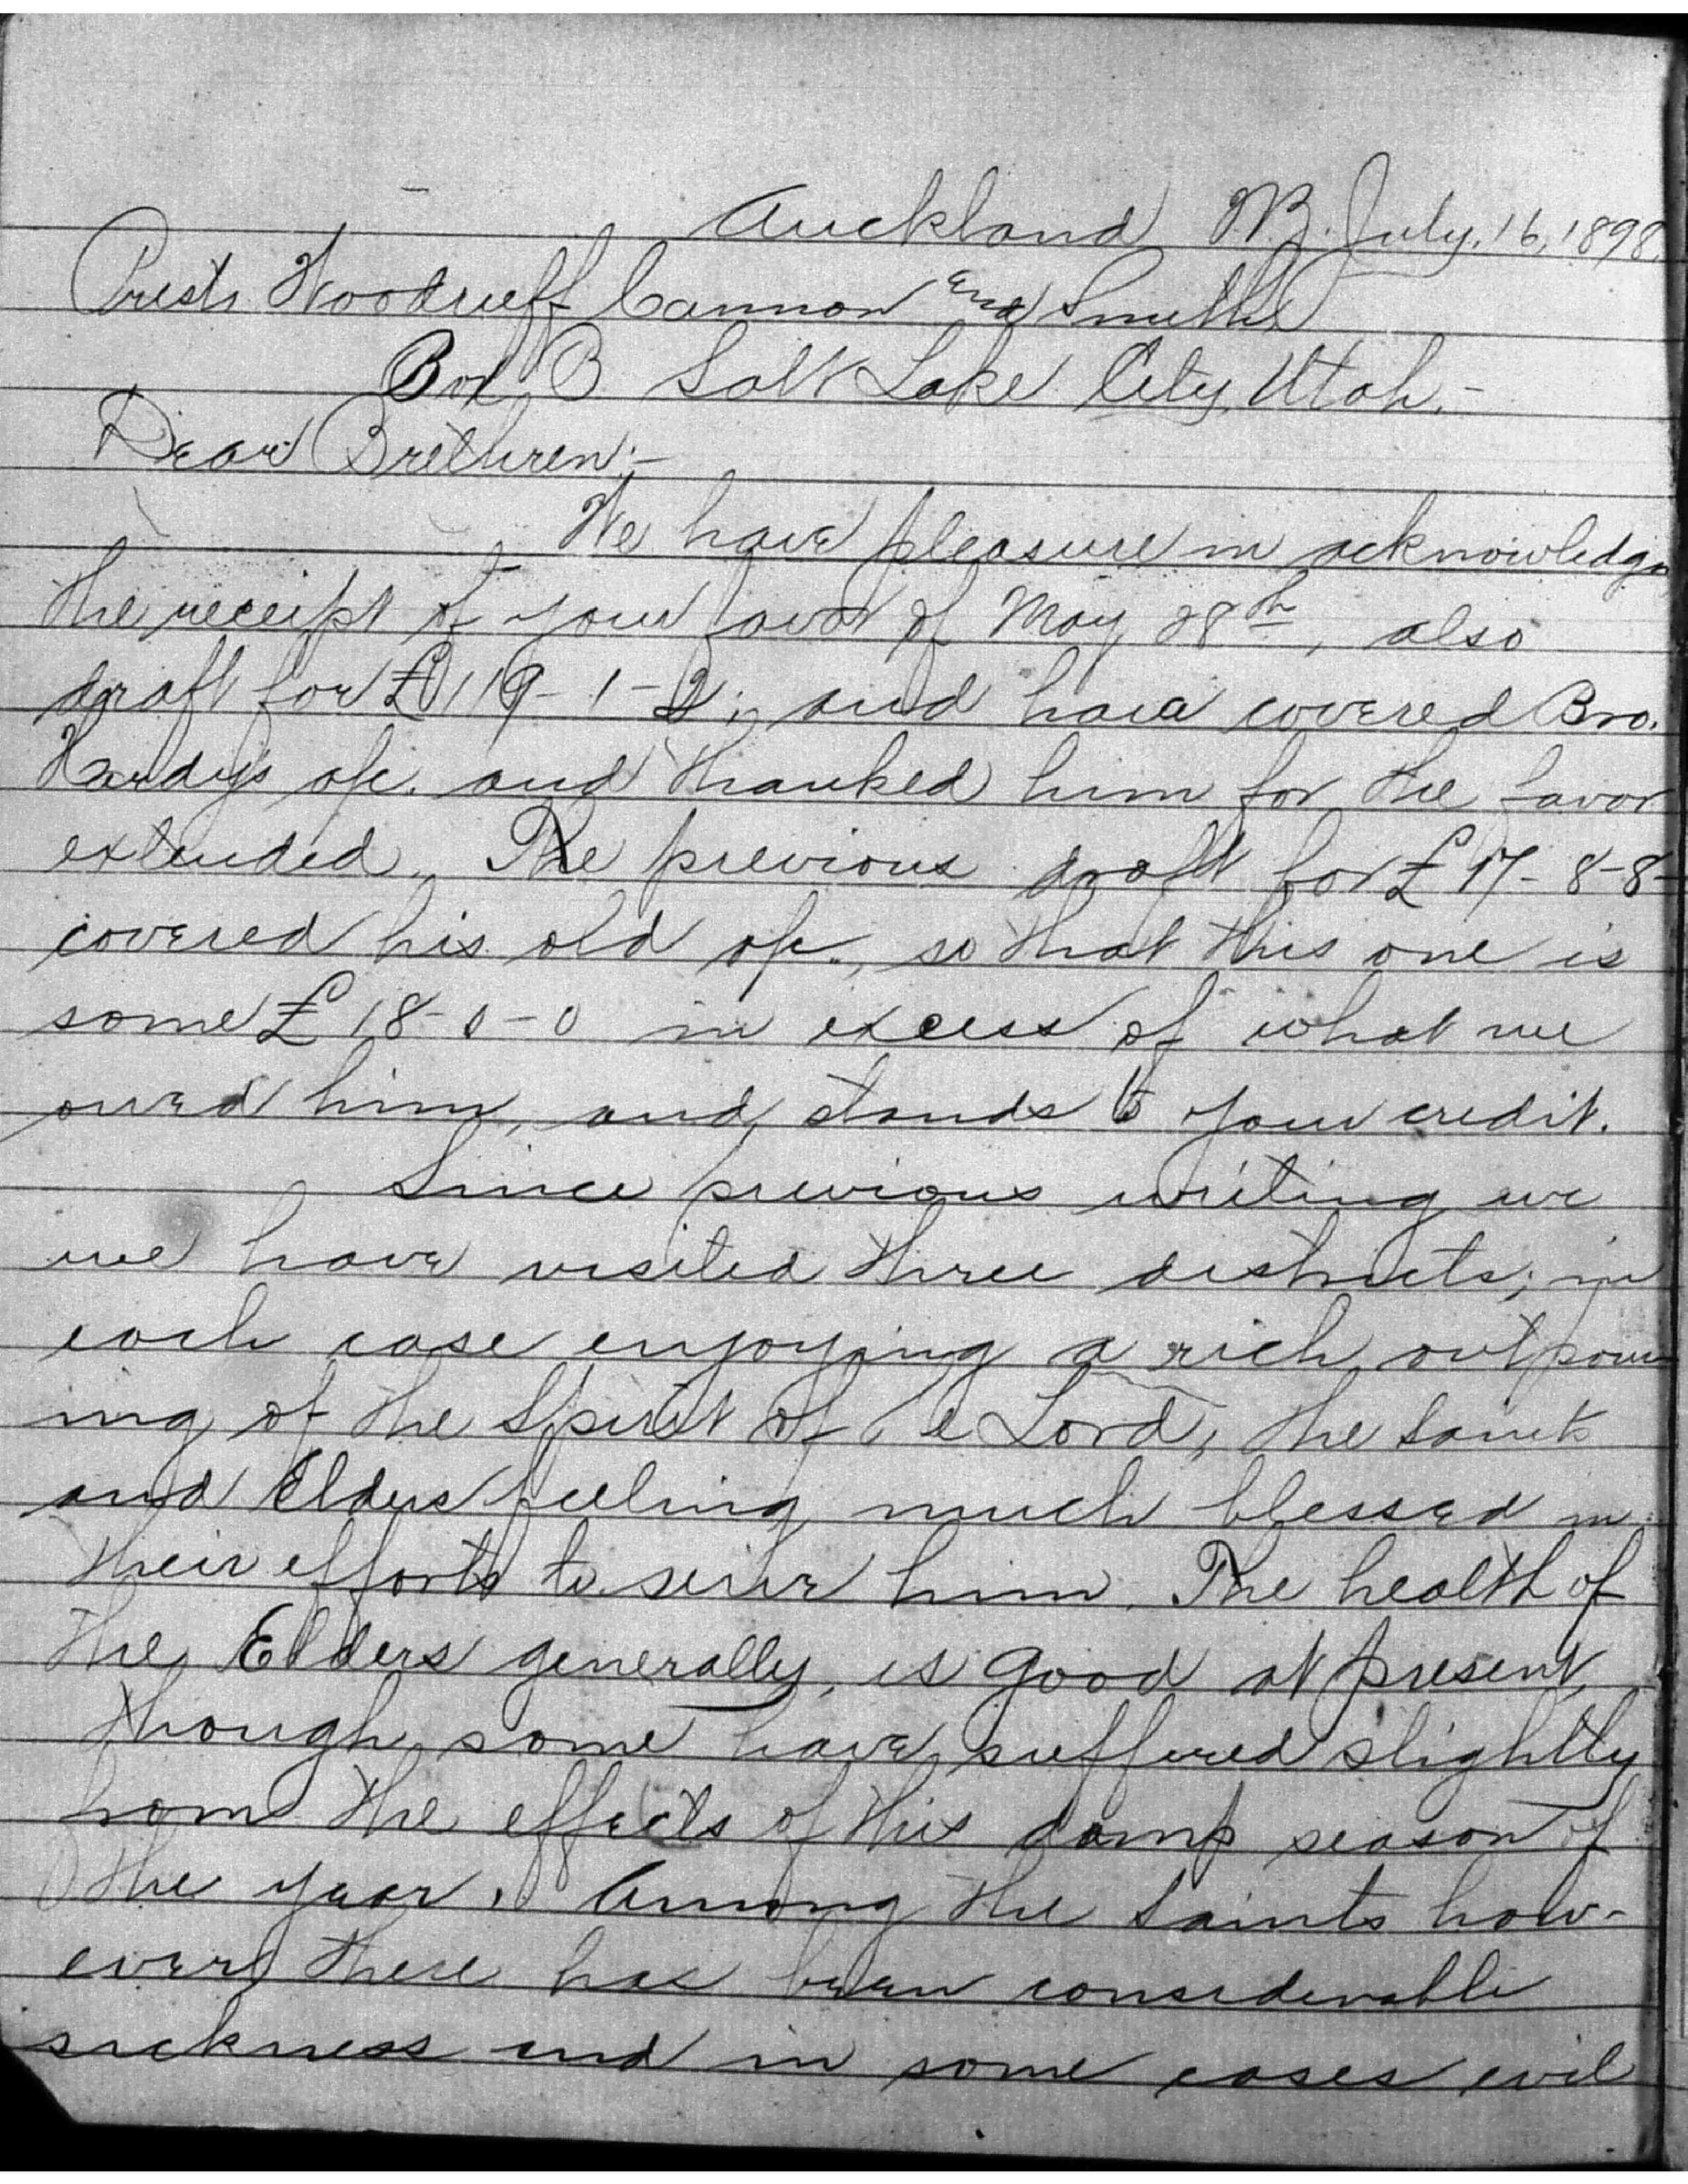 Auckland N.Z. July, 16, 1898,
Prests Woodruff Cannon and Smith
Box B Salt Lake City, Utah.-
Dear Brethren:-
We have pleasure in acknowledgn
the receipt of your favor of May 28th, also
draft for £119-1-2; and have covered Bro.
Hardys a/c. and thanked him for the favor
extended. The previous draft for £17-8-8-
covered his old a/c., so that this one is
some £18-0-0 in excess of what we
owed him, and, stands to your credit.
Since previous writing we
we have visited three districts; in
each case enjoying a rich outpour
ing of the Spirit of the Lord, the Saints
and Elders feeling much blessed in
their efforts to serve him. The health of
the Elders generally, is good at present,
though some have suffered slightly
from the effects of this damp season of
the year. Among the Saints how-
ever there has been considerable
sickness and in some cases evil